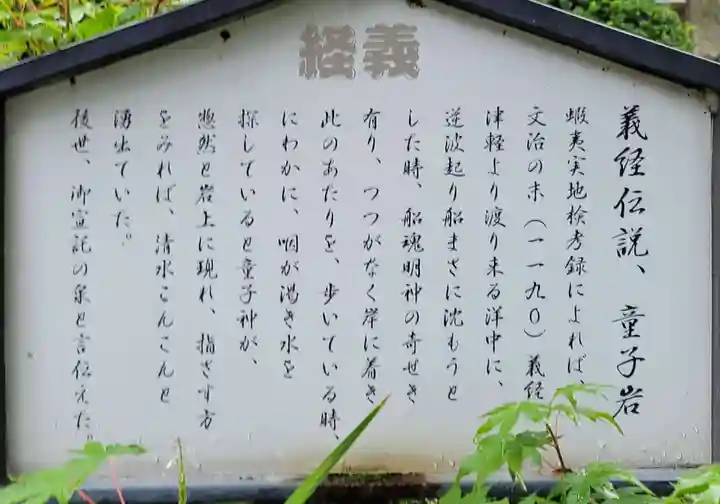 経義
義経伝説、童子岩
蝦夷実地検考録によれば、
文治の末（一一九〇）義経
津軽より渡り来る洋中に、
逆波起り船まさに沈もうと
した時、船魂明神の奇せき
有り、つつがなく岸に着き
此のあたりを、歩いている時、
にわかに、咽が渇き水を
探していると童子神が、
忽然と岩上に現れ、指さす方
をみれば、清水こんこんと
湧出ていた。"
後世、御宣託の泉と言伝えた。"